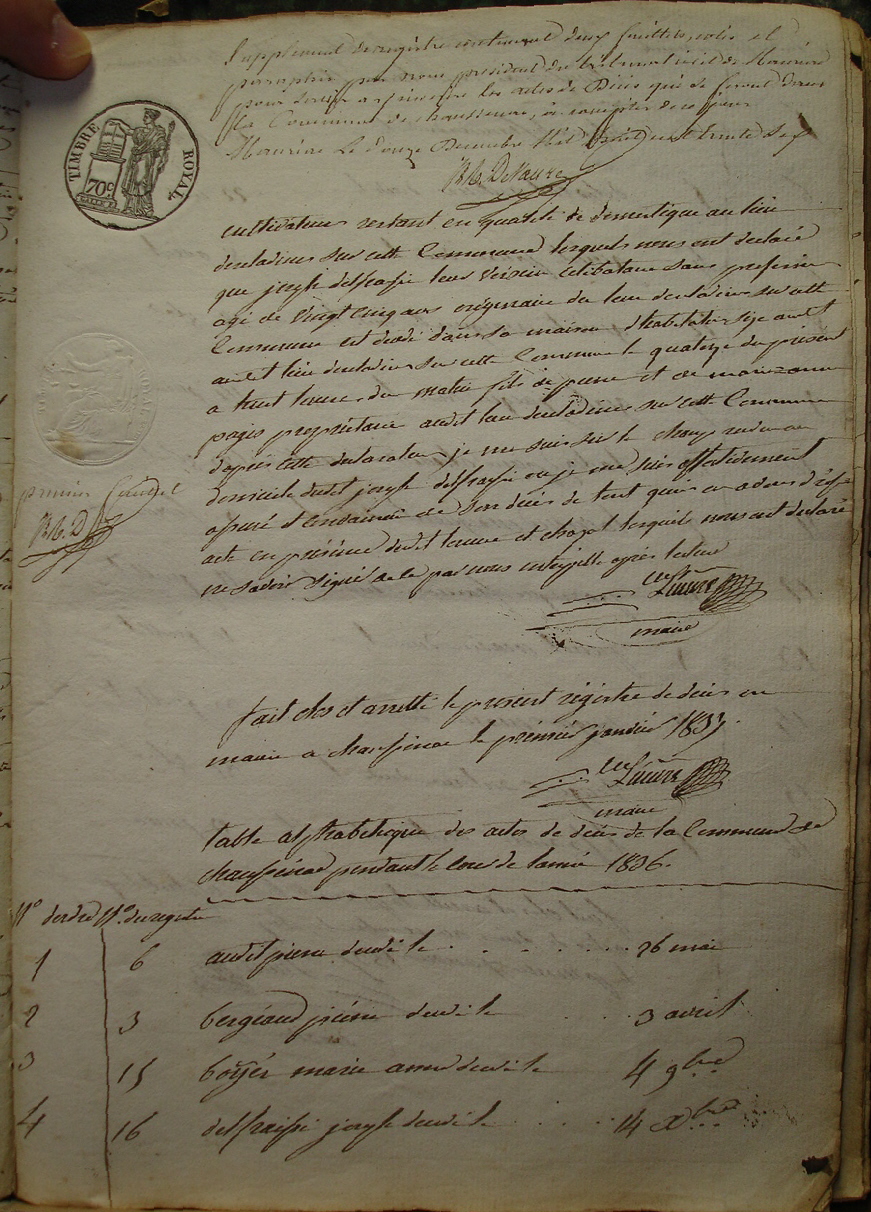 Supplement de registre contenant deux feuillets, cotés et
paraphés par nous president du tribunal civil de Mauriac
pour servir a inscrire les actes de Décès qui se feront dans
la Commune de chaussenac, à compter de ce jour
Mauriac Le douze Decembre Mil huit cent trente six
TIMBRE ROYAL
70c.
cultivateur restant en qualité de domestique au lieu
sur cette Commune lesquels nous ont declaré
que joseph delfraissi leur voisin celibataire sans profession
agé de vingt cinq ans originaire du lieu sur cette
Commune est decedé dans sa maison d'habitation size audit
audit lieu sur cette Commune le quatorze du présent
a huit heures du matin fils de pierre et de marianne
pages propriétaire audit lieu sur cette Commune
d'apres cette declaration je me suis sur le champ rendu au
domicile dudit joseph delfraissi ou je me suis effectivement
assuré de son décès de tout quoi ai dressé
acte en présence dudit et lesquels nous ont declaré
ne savoir signer de ce par nous interpellé après lecture
maire
premier feuillet
fait clos et arretté le present régistre de décès en
mairie a chaussenac le prémiér janviér 1837.
maire
table alphabetique des actes de décès de la Commune de
chaussenac pendant le cour de lannée 1836.
N° dordre N° du registre
1 6 audit pierre decedé le 26 mai
2 3 bergeaud piérre decedé le 3 avril
3 15 boyér marie anne decedé le 4 9bre
4 16 delfraissi joseph decedé le 14 Xbre